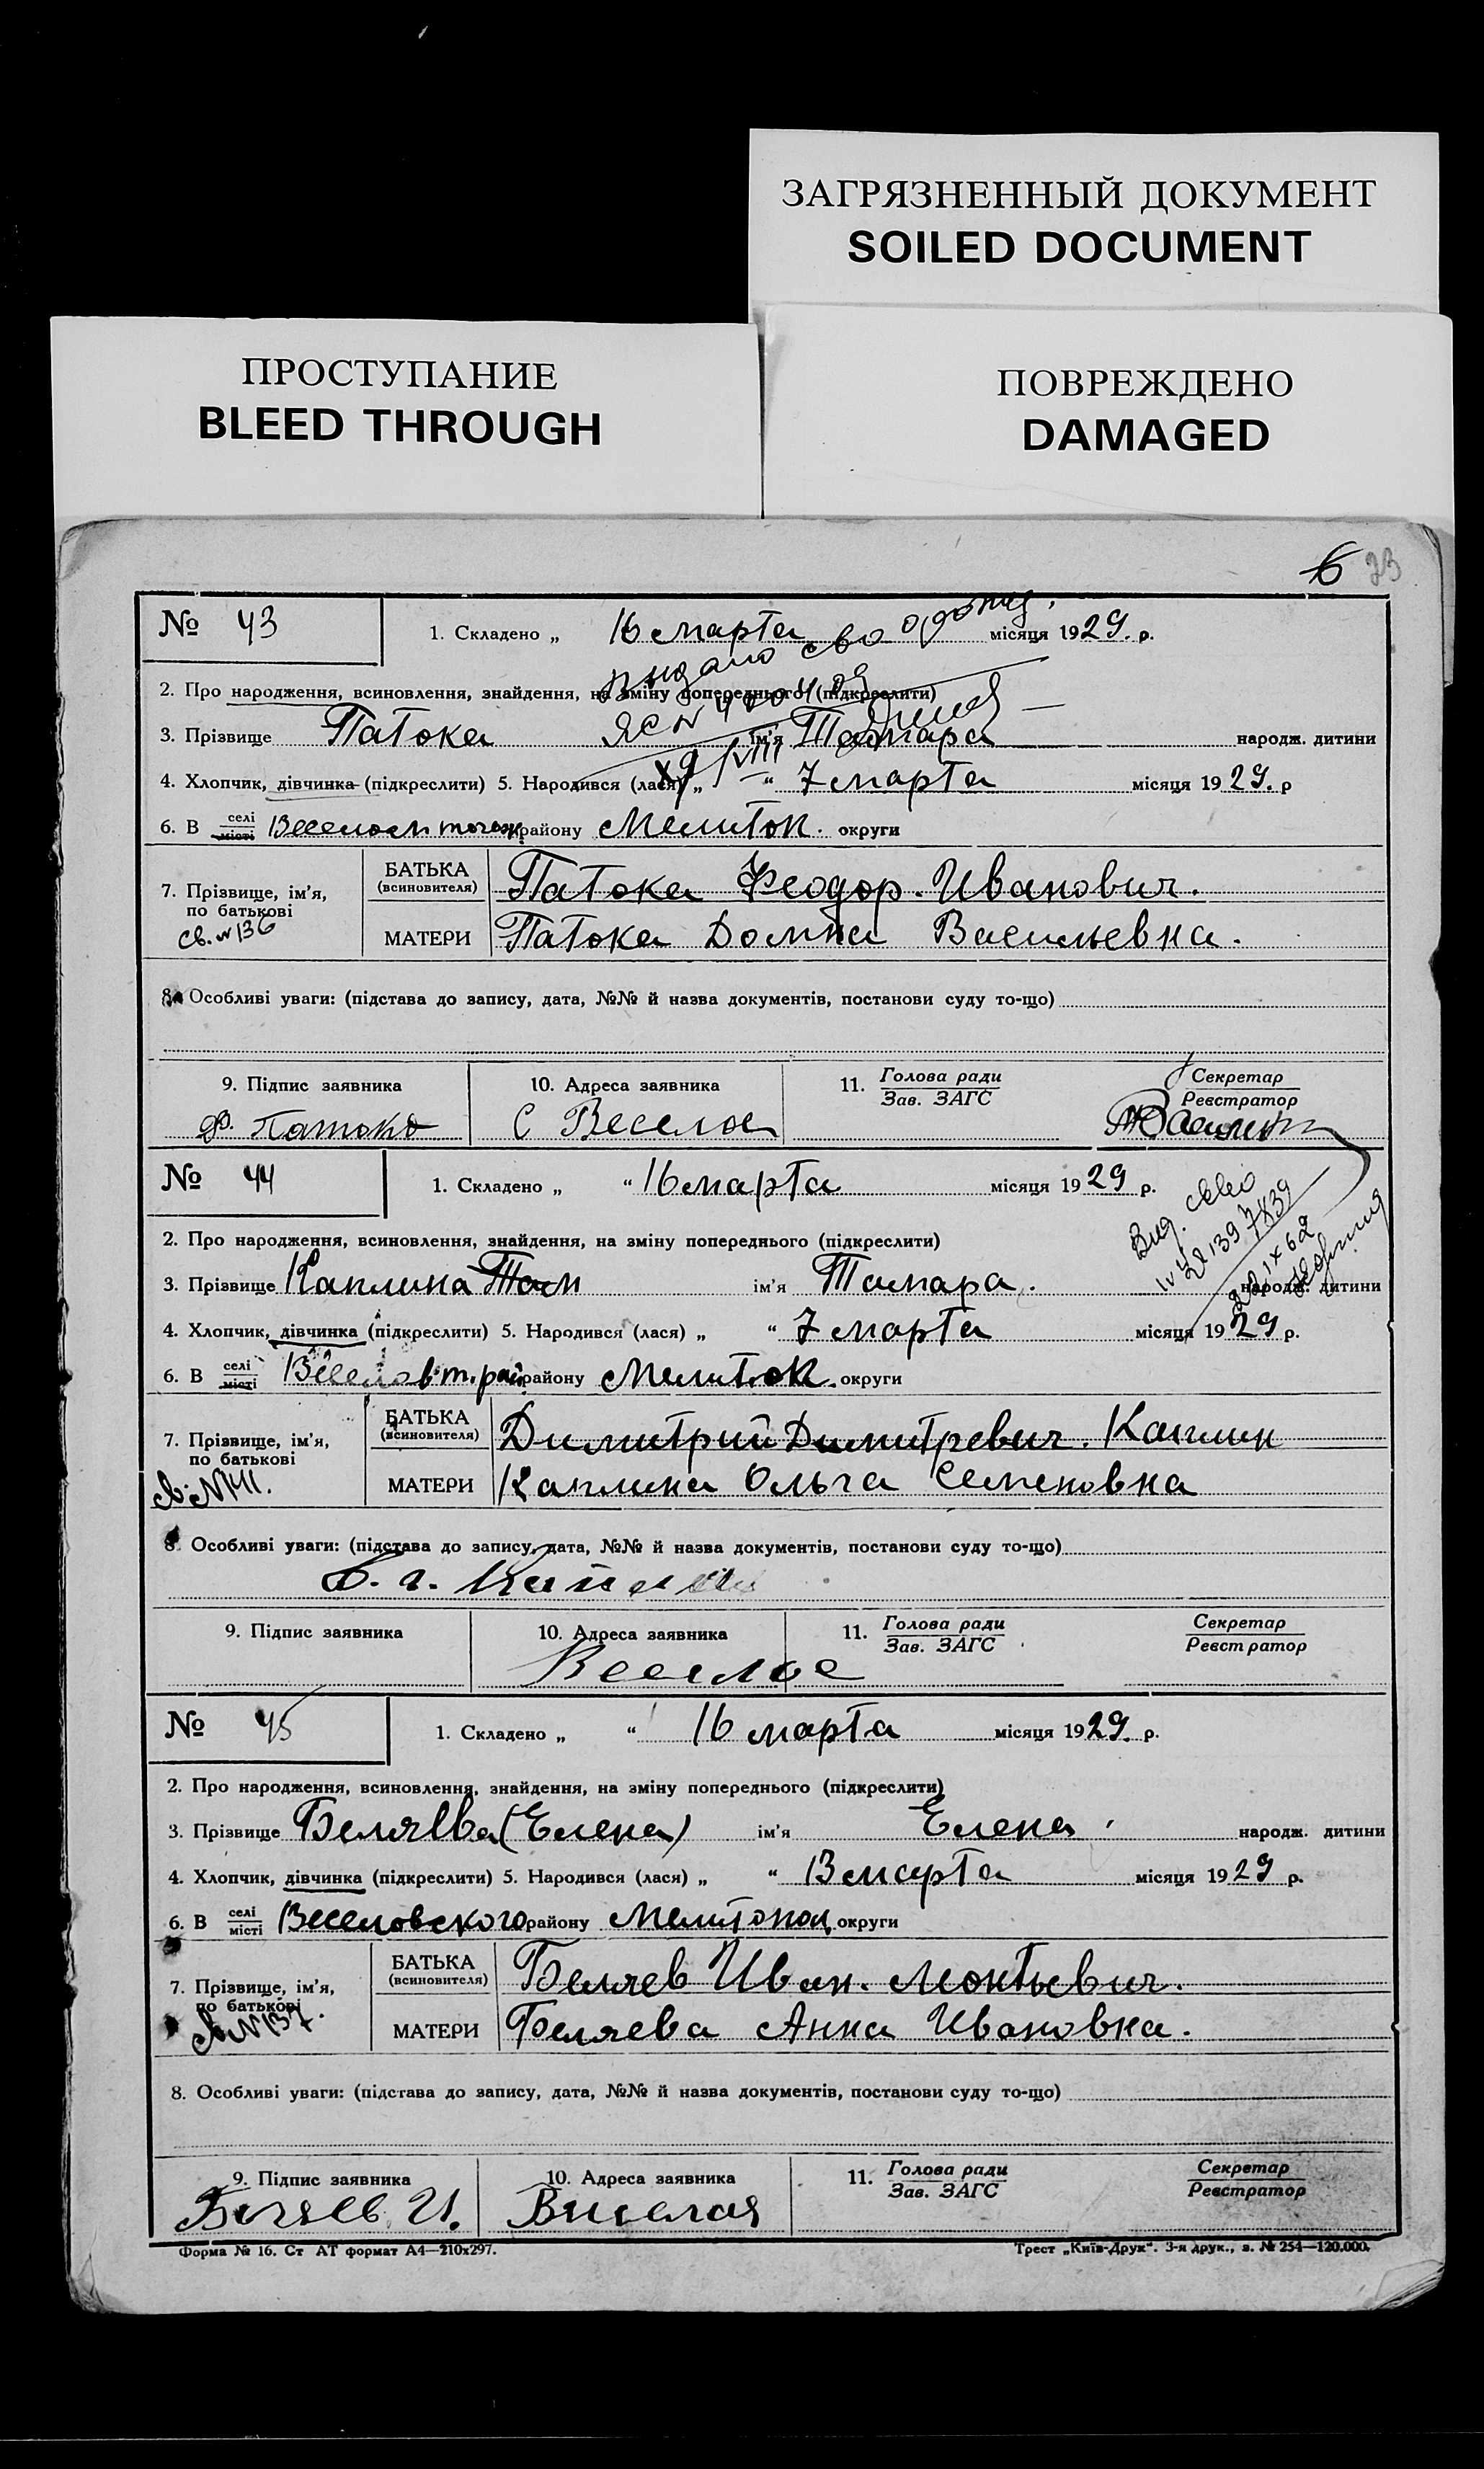 ЗАГРЯЗНЕННЫЙ ДОКУМЕНТ
SOILED DOCUMENT
ПРОСТУПАНИЕ
BLEED THROUGH
ПОВРЕЖДЕНО
DAMAGED
6 23
№ 43 1. Складено „ 16 марта місяця 1929. р.
выдано сво
2. Про народження, всиновлення, знайдення, на зміну попереднього (підкреслити)
3. Прізвище Патока ім'я Тамара народж. дитини
4. Хлопчик, дівчинка (підкреслити) 5. Народився (лася) „ “ 7 марта місяця 1929. р
6. В селі місті району Мелитоп. округи
7. Прізвище, ім'я, по батькові
БАТЬКА (всиновителя) Патока Феодор. Иванович.
МАТЕРИ Патока Домна Васильевна.
Св. № 136
8. Особливі уваги: (підстава до запису, дата, №№ й назва документів, постанови суду то-що)
9. Підпис заявника 10. Адреса заявника 11. Голова ради Зав. ЗАГС Секретар Реєстратор
Ф. Патока С Веселое
№ 44 1. Складено „ “ 16 марта місяця 1929 р.
2. Про народження, всиновлення, знайдення, на зміну попереднього (підкреслити)
3. Прізвище Каплина Там ім'я Тамара. народж. дитини
4. Хлопчик, дівчинка (підкреслити) 5. Народився (лася) „ “ 7 марта місяця 1929 р.
6. В селі місті району Мелитоп. округи
7. Прізвище, ім'я, по батькові
БАТЬКА (всиновителя) Димитрий Димитревич. Каплин
МАТЕРИ Каплина Ольга Семеновна
св. № 141.
8. Особливі уваги: (підстава до запису, дата, №№ й назва документів, постанови суду то-що)
9. Підпис заявника 10. Адреса заявника 11. Голова ради Зав. ЗАГС Секретар Реєстратор
Веселое
№ 45 1. Складено „ “ 16 марта місяця 1929. р.
2. Про народження, всиновлення, знайдення, на зміну попереднього (підкреслити)
3. Прізвище Беляева (Елена) ім'я Елена народж. дитини
4. Хлопчик, дівчинка (підкреслити) 5. Народився (лася) „ “ 13 марта місяця 1929 р.
6. В селі місті Веселовского району Мелитопол округи
7. Прізвище, ім'я, по батькові
БАТЬКА (всиновителя) Беляев Иван. Леонтьевич.
МАТЕРИ Беляева Анна Ивановна.
св № 137.
8. Особливі уваги: (підстава до запису, дата, №№ й назва документів, постанови суду то-що)
9. Підпис заявника 10. Адреса заявника 11. Голова ради Зав. ЗАГС Секретар Реєстратор
Беляев И.
Форма № 16. Ст АТ формат А4—210х297. Трест „Київ-Друк“. 3-я друк., з. № 254—120.000.